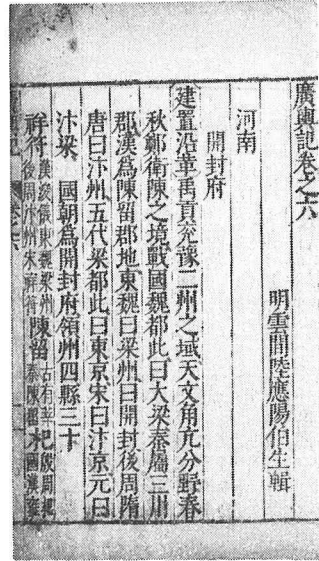 廣輿記卷之六
明雲間陸應陽伯生輯
河南
開封府
建置沿革禹貢兖豫二州之域天文角亢分野春
秋鄭衛陳之境戰國魏都此曰大梁秦屬三川
郡漢爲陳留郡地東魏曰梁州曰開封後周隋
唐曰汴州五代梁都此曰東京宋曰汴京元曰
汴梁 國朝爲開封府領州四縣三十
祥符 陳留